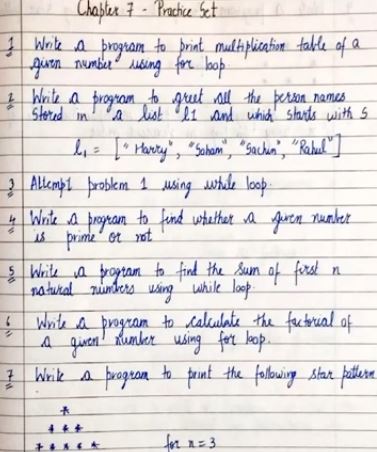 Chapter 7 - Practice Set
1 Write a program to print multiplication table of a
given number using for loop.
2 Write a program to greet all the person names
stored in a list l1 and which starts with S
l1 = ["Harry", "Soham", "Sachin", "Rahul"]
3 Attempt problem 1 using while loop.
4 Write a program to find whether a given number
is prime or not
5 Write a program to find the sum of first n
natural numbers using while loop.
6 Write a program to calculate the factorial of
a given number using for loop.
7 Write a program to print the following star pattern
*
* * *
* * * * * for n = 3